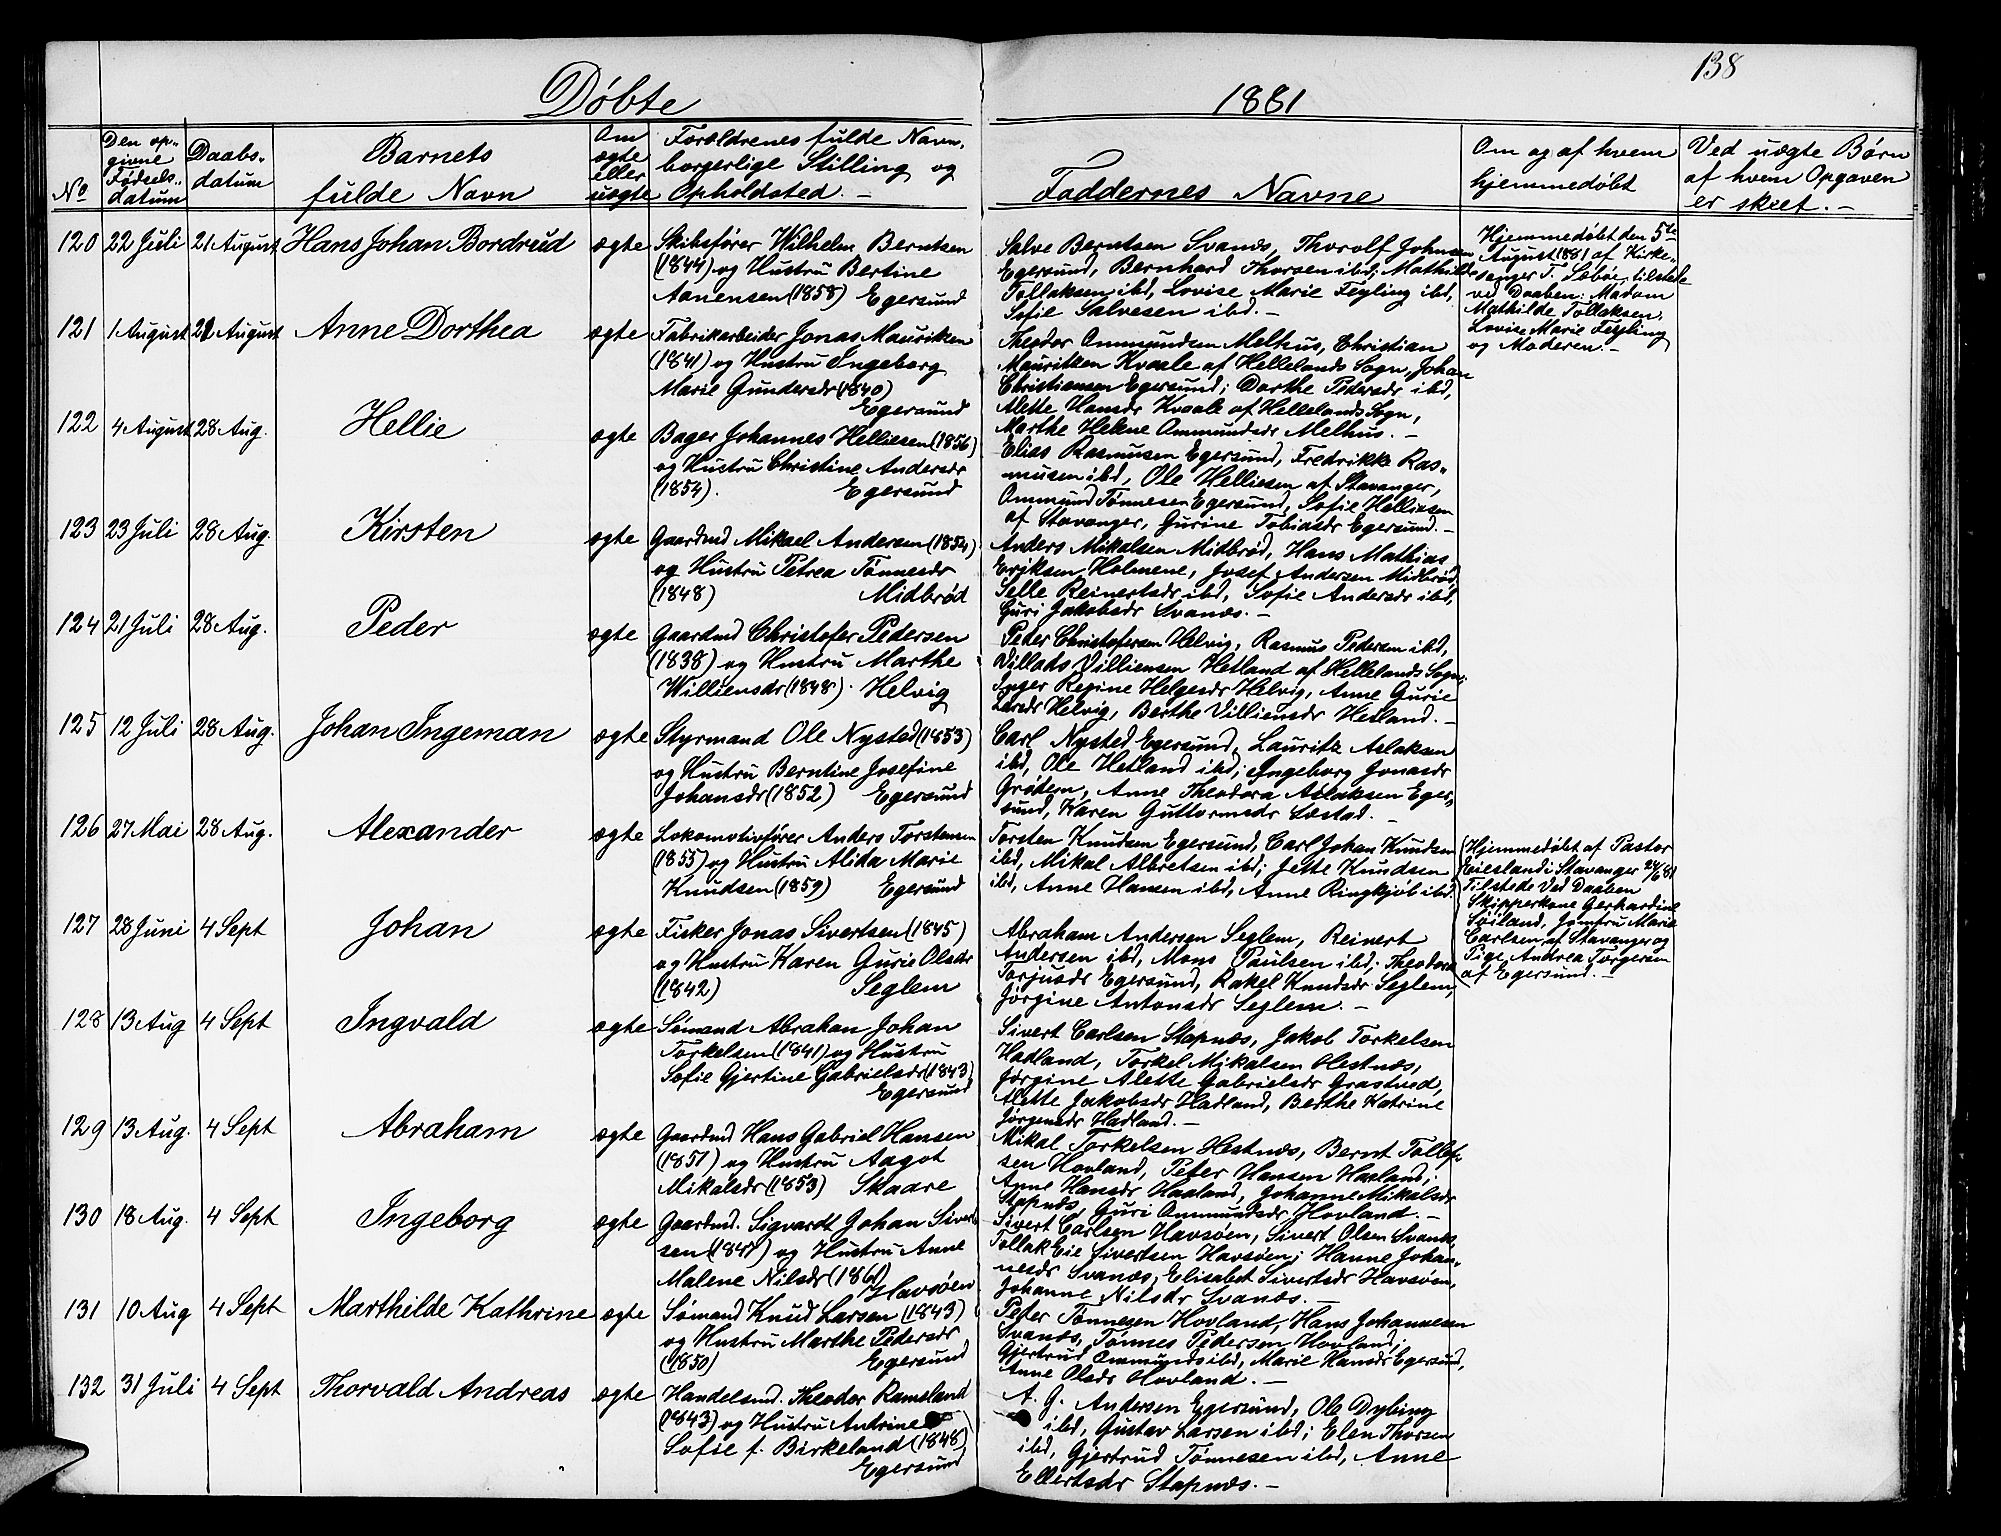 138
Døbte 1881
No
Den op-
givne
Fødsels-
datum
Daabs-
datum
Barnets
fulde Navn
Om
ægte
eller
uægte
Forældrenes fulde Navn,
borgerlige Stilling og
Opholdsted. —
Faddernes Navne
Om og af hvem
hjemmedøbt
Ved uægte Børn
af hvem Opgaven
er skeet. —
120 22 Juli 21 August Hans Johan Bordrud ægte
Skibsfører Wilhelm Berntsen
(1844) og Hustru Bertine
Aanensen (1858) Egersund
Salve Berntsen Svanæs, Thorolf Johnsen
Egersund, Bernhard Thorsen ibd; Mathilde
Tollaksen ibd, Lovise Marie Feyling ibd,
Sofie Salvesen ibd. —
Hjemmedøbt den 5te
August 1881 af Kirke-
sanger T. Sæbøe, tilstede
ved Daaben: Madam
Mathilde Tollaksen,
Lovise Marie Feyling
og Moderen. —
121 1 August 21 August Anne Dorthea ægte
Fabrikarbeider Jonas Mauritzen
(1841) og Hustru Ingeborg
Marie Gundersdr (1840)
Egersund
Theodor Ommundsen Melhus, Christian
Mauritzen Kvaale af Hellelands Sogn, Johan
Christiansen Egersund; Dorthe Pedersdr ibd,
Alette Hansdr Kvaale af Hellelands Sogn,
Marthe Helene Ommundsdr Melhus. —
122 4 August 28 Aug. Hellie ægte
Bager Johannes Helliesen (1856)
og Hustru Christine Andersdr
(1854). Egersund
Elias Rasmusen Egersund, Fredrikke Ras-
musen ibd, Ole Helliesen af Stavanger,
Ommund Tønnesen Egersund, Sofie Helliesen
af Stavanger, Gurine Tobiasdr Egersund. —
123 23 Juli 28 Aug. Kirsten ægte
Gaardmd Mikael Andersen (1854)
og Hustru Petrea Tønnesdr
(1848) Midbrød
Anders Mikalsen Midbrød, Hans Mathias
Eriksen Holmene, Josef Andersen Midbrød,
Selle Reinertsdr ibd, Sofie Andersdr ibd,
Guri Jakobsdr Svanæs. —
124 21 Juli 28 Aug. Peder ægte
Gaardmd Christofer Pedersen
(1838) og Hustru Marthe
Williensdr (1848). Helvig
Peder Christofersen Helvig, Rasmus Pedersen ibd,
Villads Villiensen Hetland af Hellelands Sogn;
Inger Regine Helgesdr Helvig, Anne Gurie
Larsdr Helvig, Berthe Villiensdr Hetland. —
125 12 Juli 28 Aug. Johan Ingeman ægte
Styrmand Ole Nysted (1853)
og Hustru Berntine Josefine
Johansdr (1852) Egersund
Carl Nysted Egersund, Lauritz Aslaksen
ibd, Ole Hetland ibd; Ingeborg Jonasdr
Grødern, Anne Theodora Aslaksen Eger-
sund, Karen Guttormsdr Sæstad. —
126 27 Mai 28 Aug. Alexander ægte
Lokomotivfører Anders Torstensen
(1855) og Hustru Alida Marie
Knudsen (1859) Egersund
Torsten Knudsen Egersund, Carl Johan Knudsen
ibd, Mikal Albretsen ibd; Jette Knudsen
ibd, Anne Hansen ibd, Anne Ringkjøb ibd.
Hjemmedøbt af Pastor
Eiesland i Stavanger 24/6 81
Tilstede ved Daaben
Skipperkone Gerhardine
Søiland, Jomfru Marie
Carlsen af Stavanger og
Pige Andrea Torgersen
af Egersund. —
127 28 Juni 4 Sept Johan ægte
Fisker Jonas Sivertsen (1845)
og Hustru Karen Gurie Olsdr
(1842) Seglem
Abraham Andersen Seglem, Reinert
Andersen ibd, Mons Paulsen ibd; Theodora
Torjusdr Egersund, Rakel Knudsdr Seglem,
Jørgine Antonsdr Seglem. —
128 13 Aug 4 Sept Ingvald ægte
Sømand Abraham Johan
Torkelsen (1841) og Hustru
Sofie Gjertine Gabrielsdr (1843)
Egersund
Sivert Carlsen Stapnæs, Jakob Torkelsen
Hadland, Torkel Mikalsen Hestnæs,
Jørgine Alette Gabrielsdr Grastved,
Alette Jakobsdr Hadland, Berthe Katrine
Jørgensdr Hadland. —
129 13 Aug. 4 Sept Abraham ægte
Gaardmd Hans Gabriel Hansen
(1851) og Hustru Aagot
Mikalsdr (1853) Skaare
Mikal Torkelsen Hestnæs, Bernt Tollef-
sen Hovland, Peter Hansen Haaland;
Anne Hansdr Haaland, Johanne Mikalsdr
Stapnæs, Guri Ommundsdr Hovland. —
130 18 Aug. 4 Sept Ingeborg ægte
Gaardmd. Sigvardt Johan Sivert-
sen (1847) og Hustru Anne
Malene Nilsdr (1861)
Havsøen
Sivert Carlsen Havsøen, Sivert Olsen Svanæs,
Tollak Eie Sivertsen Havsøen; Hanne Johan-
nesdr Svanæs, Elisabet Sivertsdr Havsøen,
Johanne Nilsdr Svanæs. —
131 10 Aug 4 Sept Marthilde Kathrine ægte
Sømand Knud Larsen (1843)
og Hustru Marthe Pedersdr
(1850) Egersund
Peter Tønnesen Hovland, Hans Johannesen
Svanæs, Tønnes Pedersen Hovland;
Gjertrud Ommunds ibd, Marie Hansdr Egersund,
Anne Olsdr Hovland. —
132 31 Juli 4 Sept Thorvald Andreas ægte
Handelsmd. Theodor Ramsland
(1843) og Hustru Antrine
Sofie f. Birkeland (1848)
Egersund
A. G. Andersen Egersund, Ole Dybing
ibd, Gustav Larsen ibd; Elen Thorsen
ibd, Gjertrud Tønnesen ibd, Anne
Ellertsdr Stapnæs. —